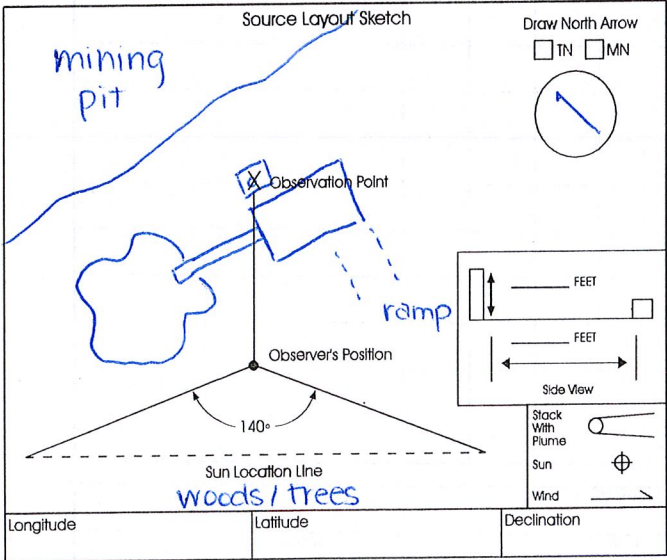 Source Layout Sketch
Draw North Arrow
TN MN
mining
pit
X Observation Point
ramp
FEET
FEET
Side View
Observer's Position
140°
Sun Location Line
woods / trees
Stack
With
Plume
Sun
Wind
Longitude
Latitude
Declination